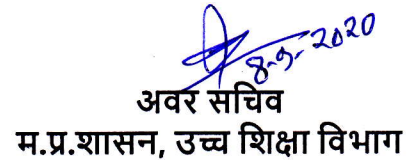 8-9-2020
अवर सचिव
म.प्र.शासन, उच्च शिक्षा विभाग